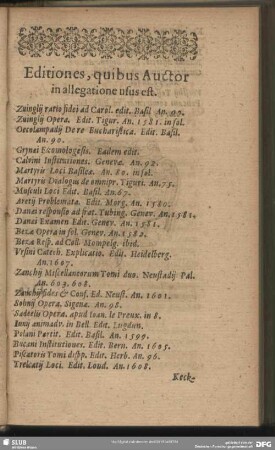 Editiones, quibus Auctor
in allegatione usus est.
Zuinglij ratio fidei ad Carol. edit. Basil An. 90.
Zuinglij Opera. Edit. Tigur. An. 1581. in fol.
Oecolampadij De re Eucharistica. Edit. Basil.
An. 90.
Grynei Economologesis. Eadem edit.
Calvini Institutiones. Geneva. An. 92.
Martyris Loci Basilea. An. 80. in fol.
Martyris Dialogus de omnipr. Tiguri. An. 75.
Musculi Loci Edit. Basil. An. 67.
Aretij Problemata. Edit. Morg. An. 1580.
Danai responsio ad frat. Tubing. Genev. An. 1581.
Danai Examen Edit. Genev. An. 1581.
Beza Opera in fol. Genev. An. 1582.
Beza Resp. ad Coll. Mompelg. ibid.
Vrsini Catech. Explicatio. Edit. Heidelberg.
An. 1607.
Zanchij Miscellaneorum Tomi duo. Neustadij Pal.
An. 603. 608.
Zanchij fides & Conf. Ed. Neust. An. 1601.
Sohnij Opera. Sigena. An. 98.
Sadeelis Opera. apud Ioan. le Preux. in 8.
Iunij animadv. in Bell. Edit. Lugdun.
Polani Partit. Edit. Basil. An. 1599.
Bucani Institutiones. Edit. Bern. An. 1605.
Piscatoris Tomi disp. Edit. Herb. An. 96.
Trelcatij Loci. Edit. Lond. An. 1608.
Keck-
SLUB